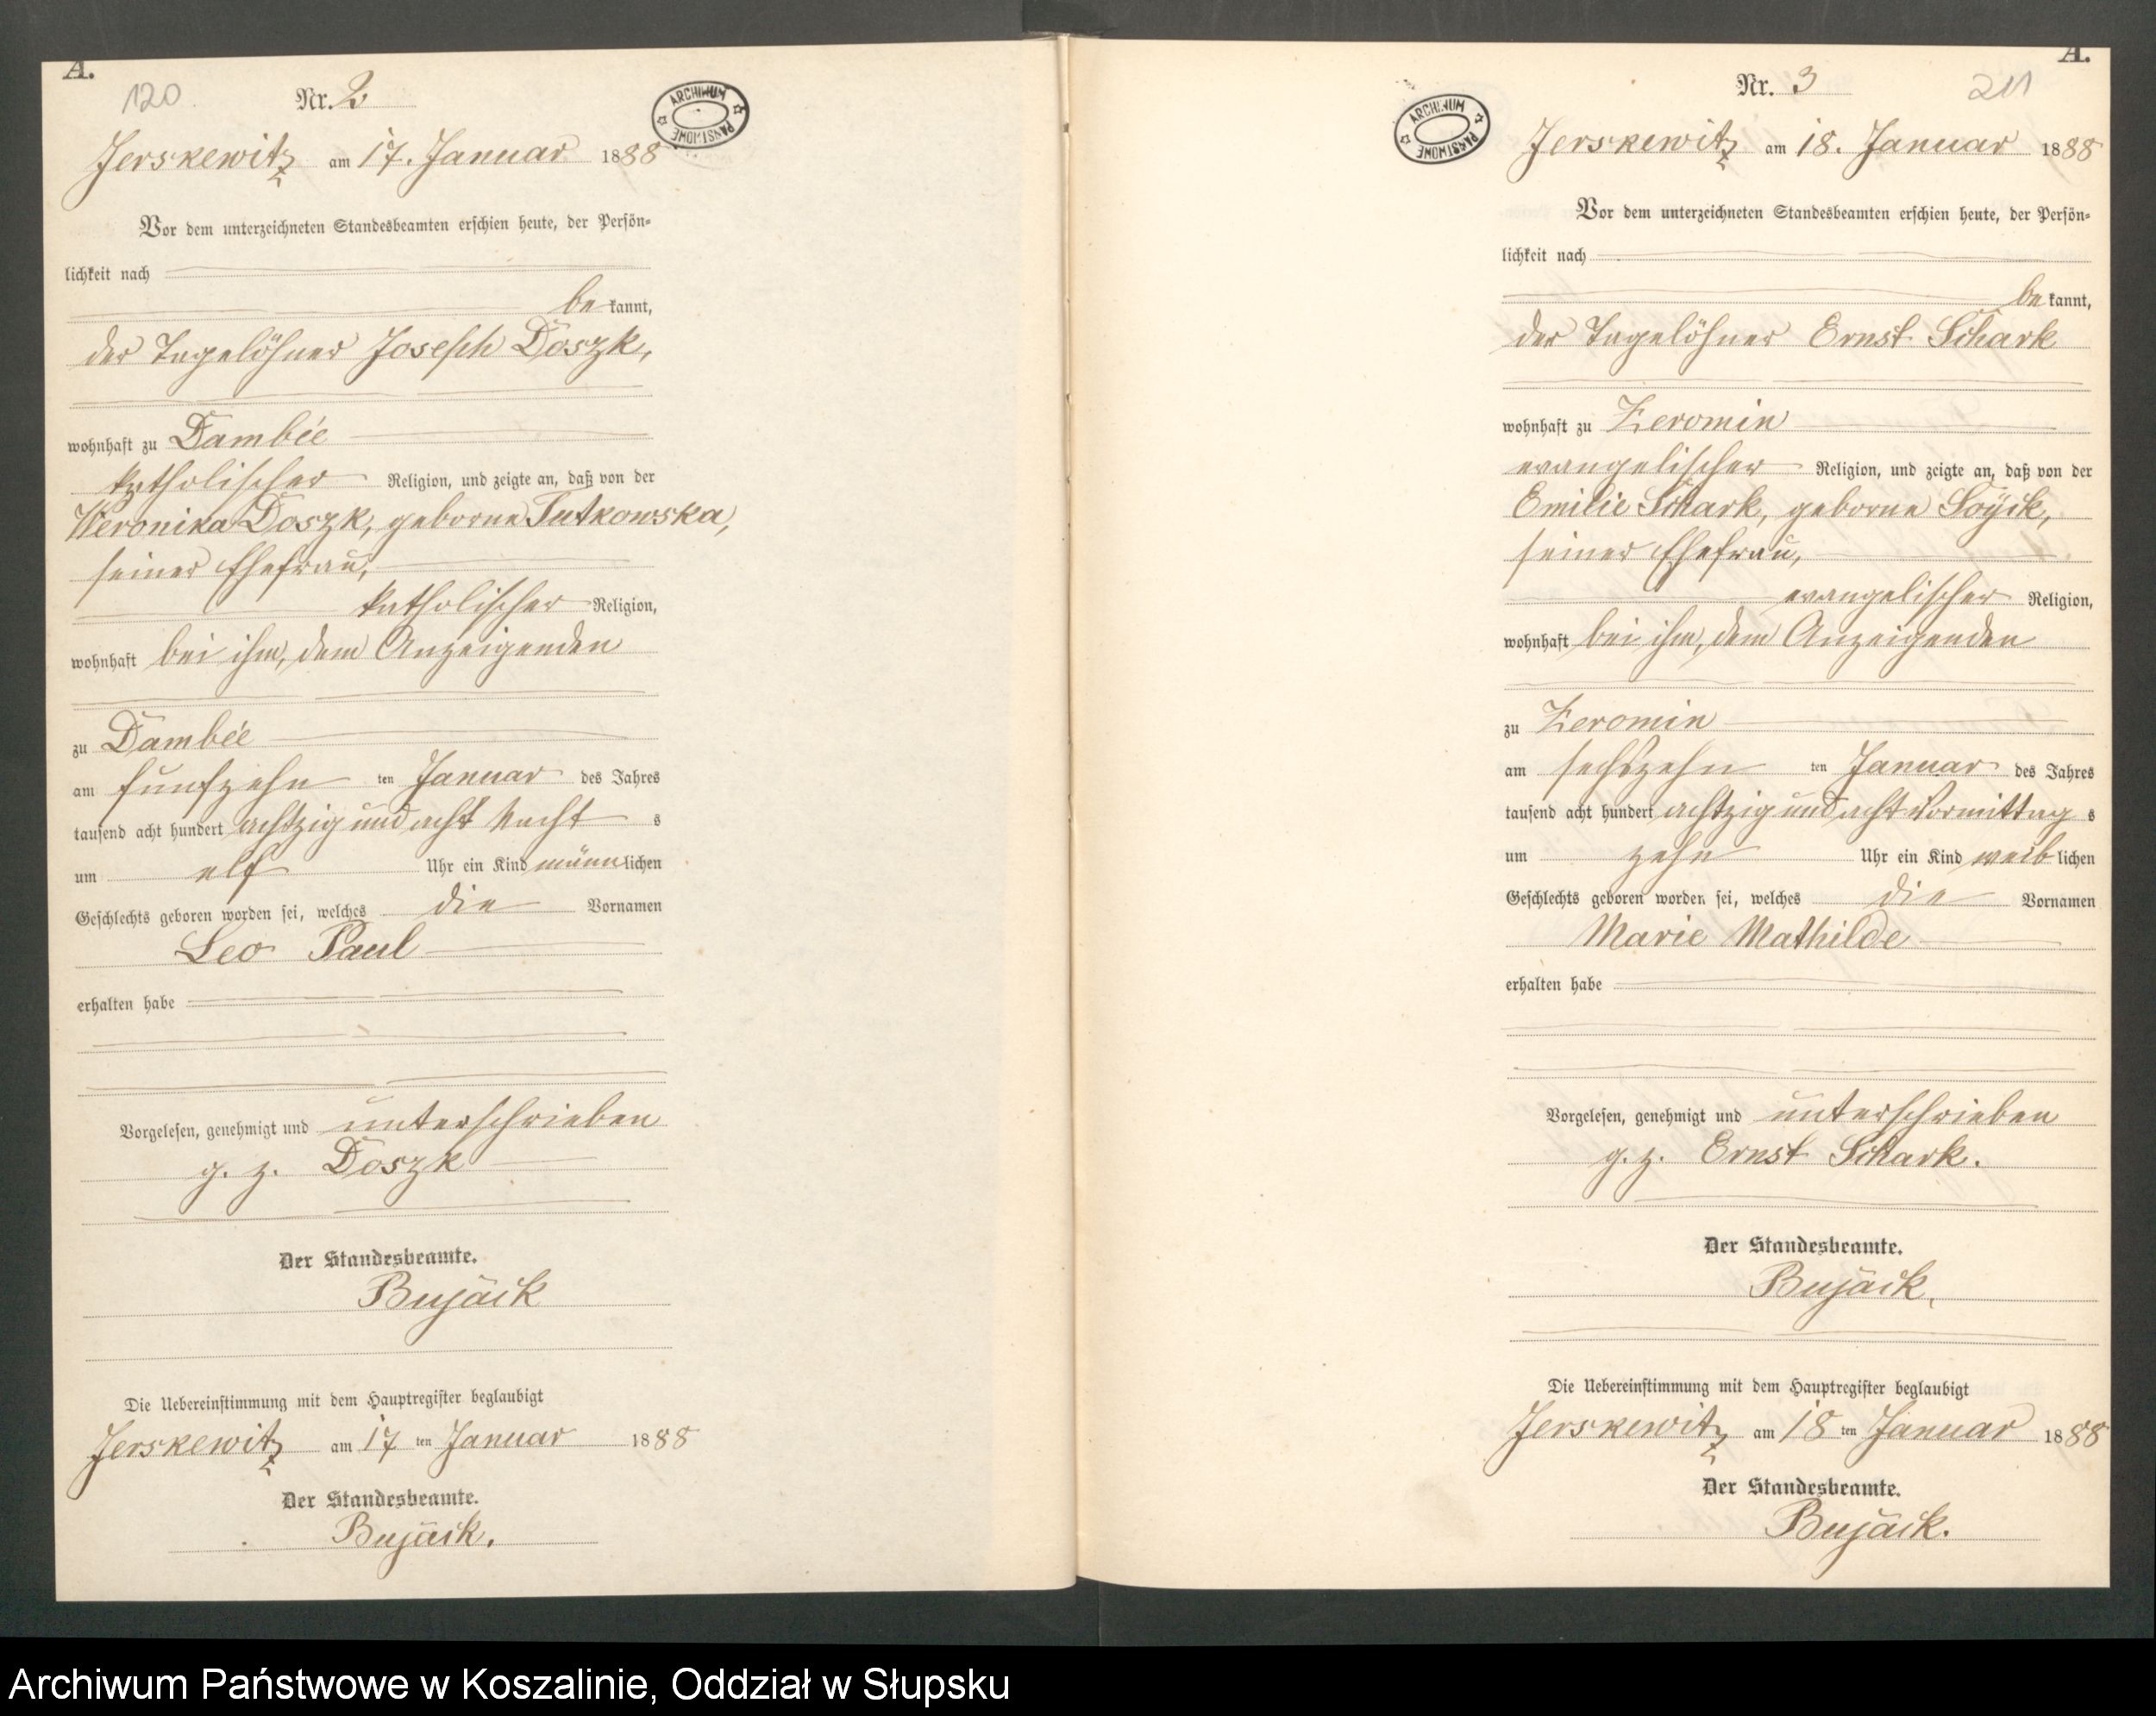 A.
120
Nr. 2
ARCHIWUM PAŃSTWOWE
Jerskewitz am 17. Januar 1888
Vor dem unterzeichneten Standesbeamten erschien heute, der Persön-
lichkeit nach
be kannt,
der Tagelöhner Joseph Doszk,
wohnhaft zu Dambee
katholischer Religion, und zeigte an, daß von der
Weronika Doszk, geborne Tutkowska,
seiner Ehefrau,
katholischer Religion,
wohnhaft bei ihm, dem Anzeigenden
zu Dambee
am fünfzehn ten Januar des Jahres
tausend acht hundert achtzig und acht Nacht s
um elf Uhr ein Kind männlichen
Geschlechts geboren worden sei, welches die Vornamen
Leo Paul
erhalten habe
Vorgelesen, genehmigt und unterschrieben
g. z. Doszk
Der Standesbeamte.
Bujack
Die Uebereinstimmung mit dem Hauptregister beglaubigt
Jerskewitz am 17 ten Januar 1888
Der Standesbeamte.
Bujack.
A.
Nr. 3
211
ARCHIWUM PAŃSTWOWE
Jerskewitz am 18. Januar 1888
Vor dem unterzeichneten Standesbeamten erschien heute, der Persön-
lichkeit nach
be kannt,
der Tagelöhner Ernst Schark
wohnhaft zu Zeromin
evangelischer Religion, und zeigte an, daß von der
Emilie Schark, geborne Soyck,
seiner Ehefrau,
evangelischer Religion,
wohnhaft bei ihm, dem Anzeigenden
zu Zeromin
am sechszehn ten Januar des Jahres
tausend acht hundert achtzig und acht Vormittag s
um zehn Uhr ein Kind weiblichen
Geschlechts geboren worden sei, welches die Vornamen
Marie Mathilde
erhalten habe
Vorgelesen, genehmigt und unterschrieben
g. z. Ernst Schark.
Der Standesbeamte.
Bujack.
Die Uebereinstimmung mit dem Hauptregister beglaubigt
Jerskewitz am 18 ten Januar 1888
Der Standesbeamte.
Bujack.
Archiwum Państwowe w Koszalinie, Oddział w Słupsku